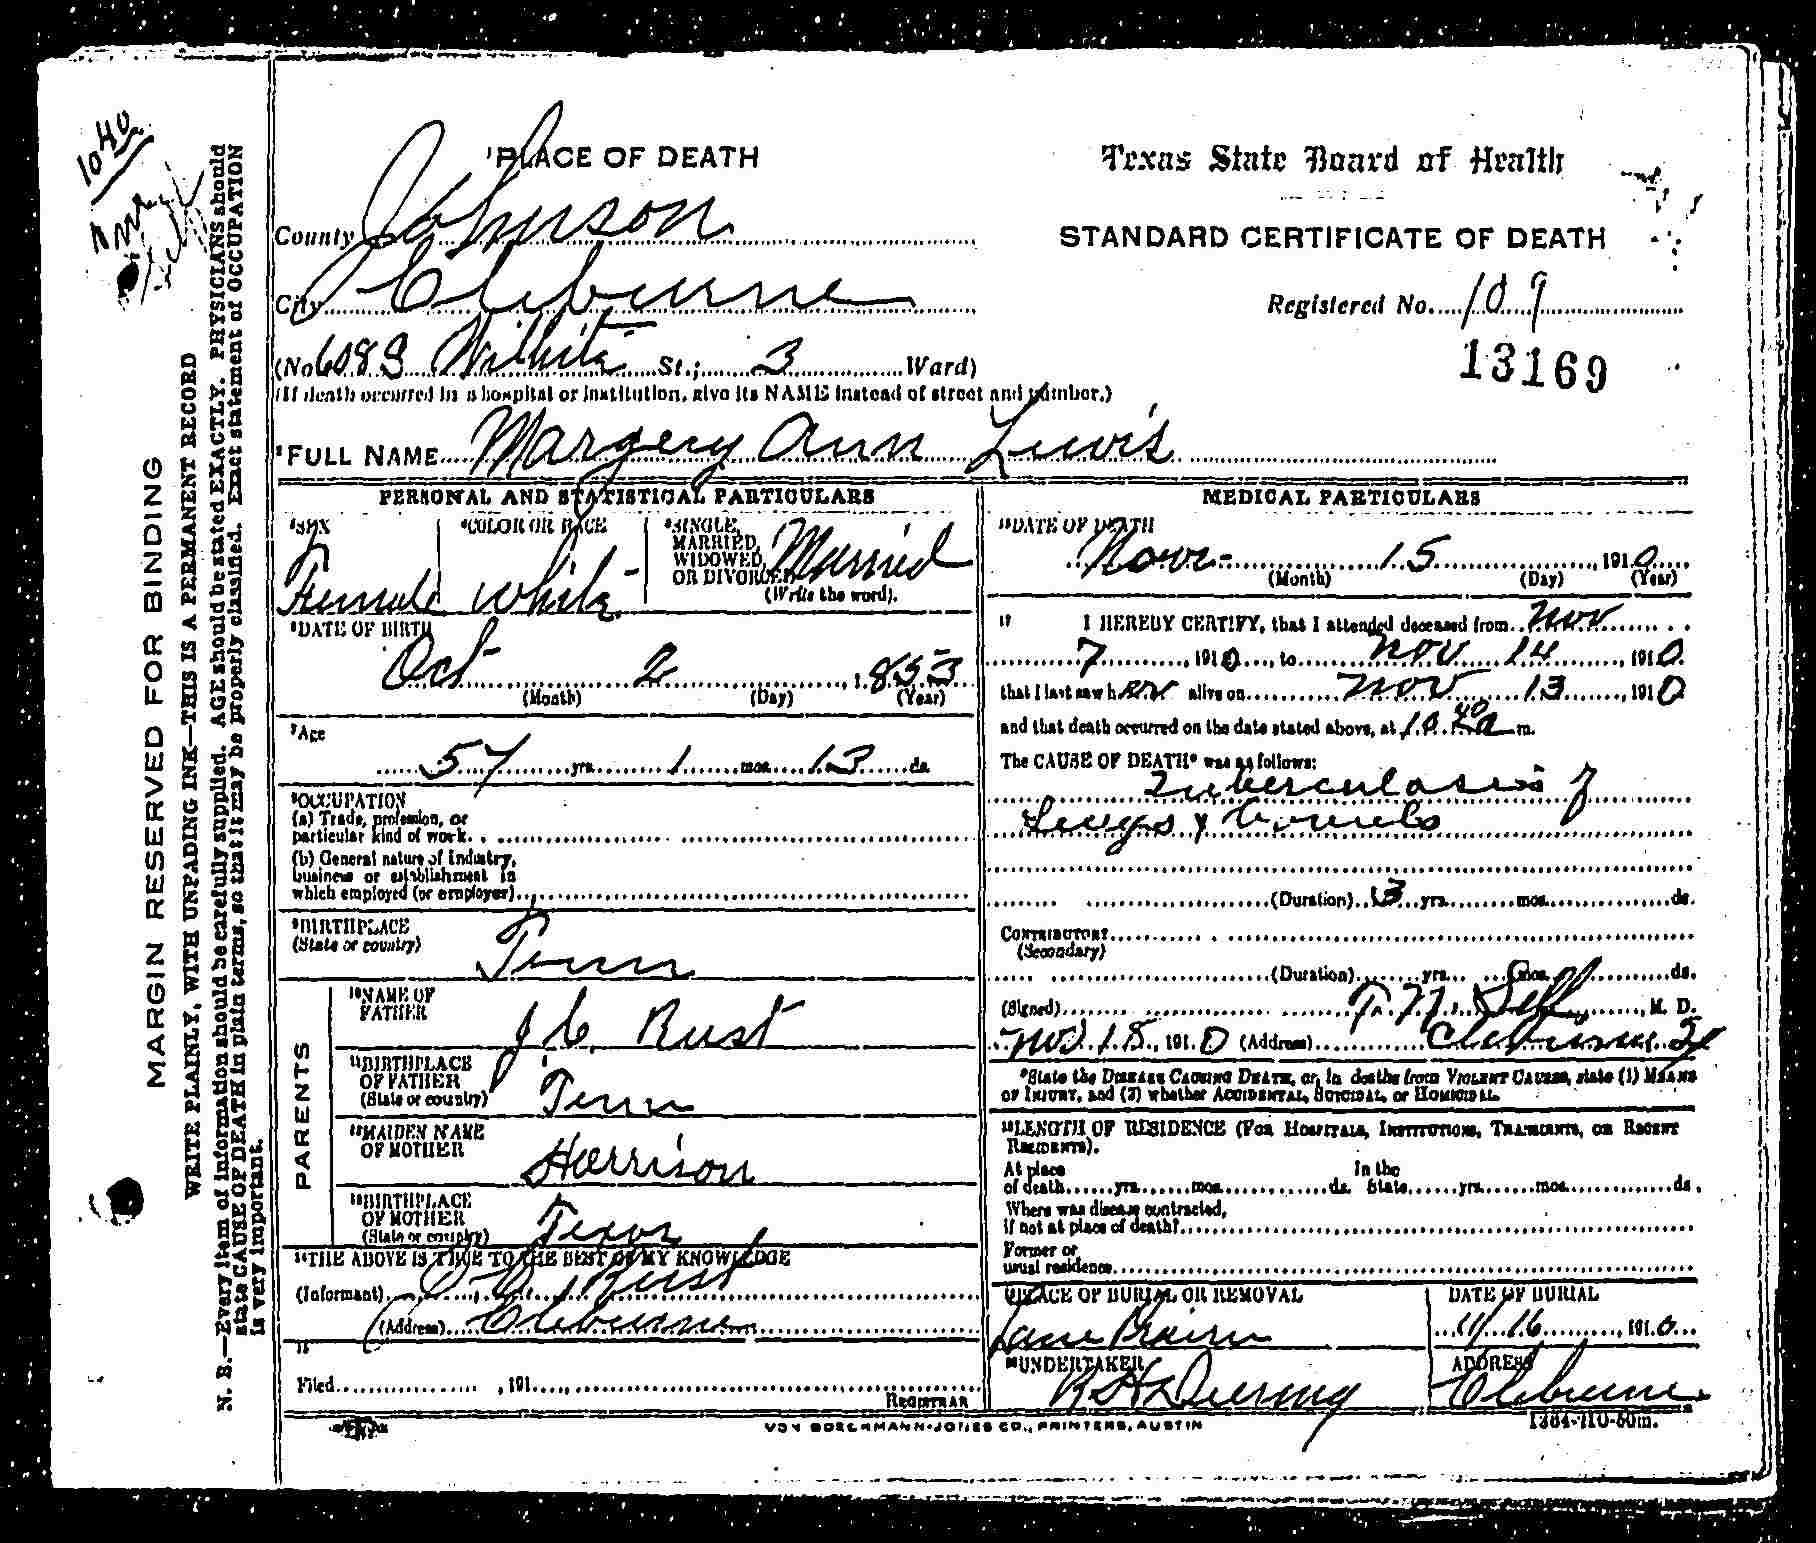 1040
MARGIN RESERVED FOR BINDING
WRITE PLAINLY, WITH UNFADING INK—THIS IS A PERMANENT RECORD
N. B.—Every item of information should be carefully supplied. AGE should be stated EXACTLY. PHYSICIANS should
state CAUSE OF DEATH in plain terms, so that it may be properly classified. Exact statement of OCCUPATION
is very important.
1 PLACE OF DEATH
County Johnson
City Cleburne
(No 608 S Wilhite St.; 3 Ward)
(If death occurred in a hospital or institution, give its NAME instead of street and number.)
Texas State Board of Health
STANDARD CERTIFICATE OF DEATH
Registered No. 109
13169
2 FULL NAME Margery Ann Lewis
PERSONAL AND STATISTICAL PARTICULARS
3 SEX
Female
4 COLOR OR RACE
White
5 SINGLE, MARRIED, WIDOWED, OR DIVORCED
Married
(Write the word).
6 DATE OF BIRTH
Oct 2, 1853
(Month) (Day) (Year)
7 Age
57 yrs. 1 mos. 13 ds.
8 OCCUPATION
(a) Trade, profession, or
particular kind of work
(b) General nature of Industry,
business or establishment in
which employed (or employer)
9 BIRTHPLACE
(State or country)
Tenn
PARENTS
10 NAME OF FATHER
J C. Rust
11 BIRTHPLACE OF FATHER
(State or country)
Tenn
12 MAIDEN NAME OF MOTHER
Harrison
13 BIRTHPLACE OF MOTHER
(State or country)
Texas
14 THE ABOVE IS TRUE TO THE BEST OF MY KNOWLEDGE
(Informant) Rust
(Address) Cleburne
15
Filed , 191
REGISTRAR
MEDICAL PARTICULARS
16 DATE OF DEATH
Nov 15, 1910
(Month) (Day) (Year)
17 I HEREBY CERTIFY, that I attended deceased from Nov
7, 1910, to Nov 14, 1910
that I last saw her alive on Nov 13, 1910
and that death occurred on the date stated above, at 10 40 a m.
The CAUSE OF DEATH* was as follows:
Tuberculosis of
Lungs & bowels
(Duration) 3 yrs. mos. ds.
CONTRIBUTORY
(Secondary)
(Duration) yrs. mos. ds.
(Signed) Self, M. D.
Nov 18, 1910 (Address) Cleburne
*State the DISEASE CAUSING DEATH, or, in deaths from VIOLENT CAUSES, state (1) MEANS
OF INJURY, and (2) whether ACCIDENTAL, SUICIDAL, or HOMICIDAL.
18 LENGTH OF RESIDENCE (FOR HOSPITALS, INSTITUTIONS, TRANSIENTS, OR RECENT
RESIDENTS).
At place of death yrs. mos. ds. In the State yrs. mos. ds.
Where was disease contracted,
if not at place of death?
Former or
usual residence
19 PLACE OF BURIAL OR REMOVAL
Lane Prairie
DATE OF BURIAL
11/16, 1910
20 UNDERTAKER
R H Deering
ADDRESS
Cleburne
VON BOECKMANN-JONES CO., PRINTERS, AUSTIN
1364-710-50m.